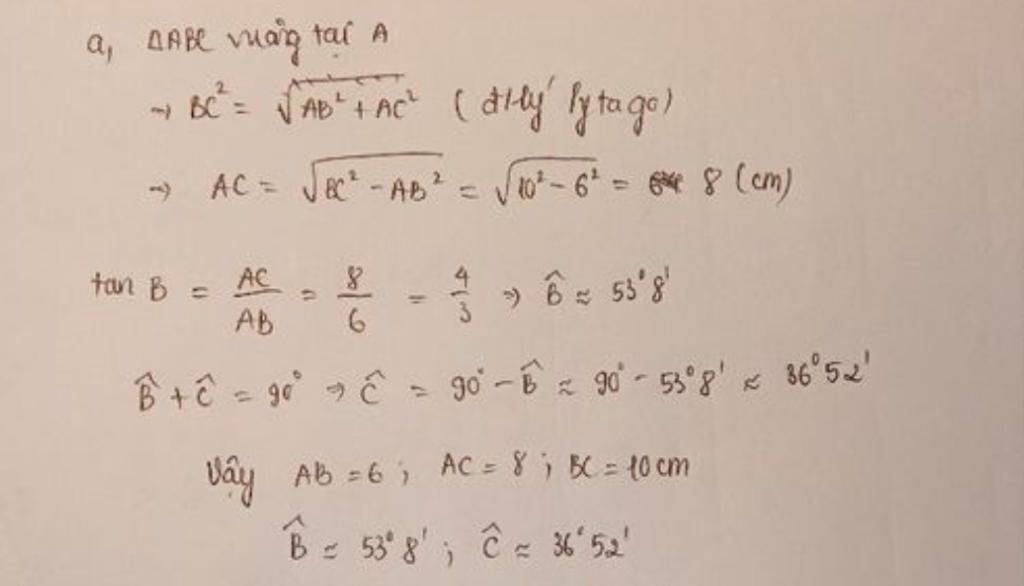 a, ΔABC vuông tại A
→ BC² = √AB² + AC² ( đ/lý Pytago)
→ AC = √BC² - AB² = √10² - 6² = 8 (cm)
tan B = AC/AB = 8/6 = 4/3 → B̂ ≈ 53°8'
B̂ + Ĉ = 90° → Ĉ = 90° - B̂ ≈ 90° - 53°8' ≈ 36°52'
Vậy AB = 6 ; AC = 8 ; BC = 10 cm
B̂ ≈ 53°8' ; Ĉ ≈ 36°52'